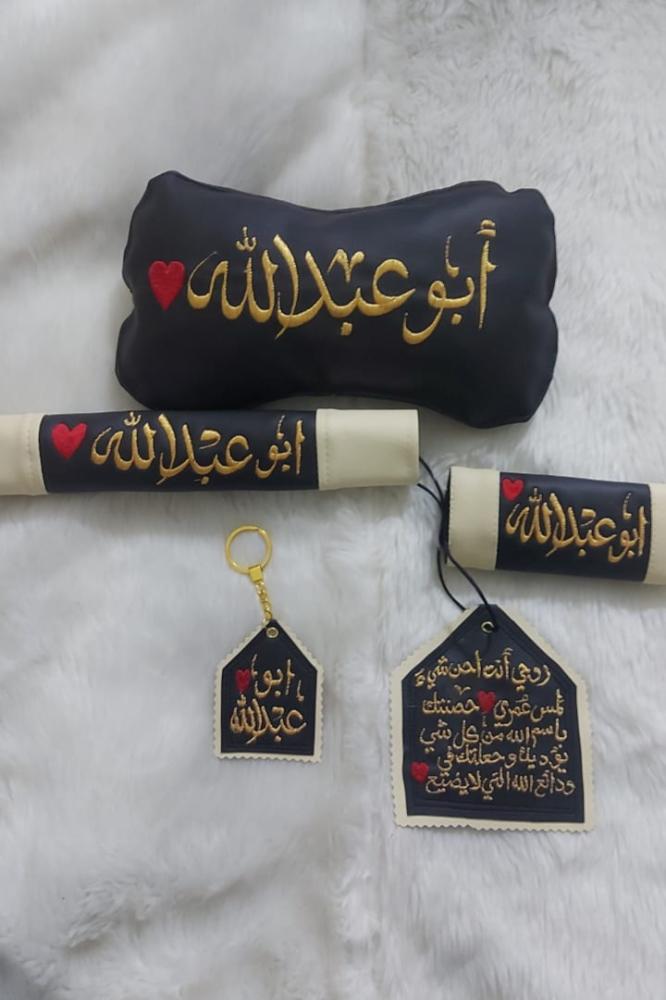 أبو عبدالله
ابو عبدالله
ابو عبدالله
ابو
عبدالله
زوجي أنت احن شيء
لمس عمري حصنتك
باسم الله من كل شي
يؤذيك وجعلتك في
ودائع الله التي لا يضيع